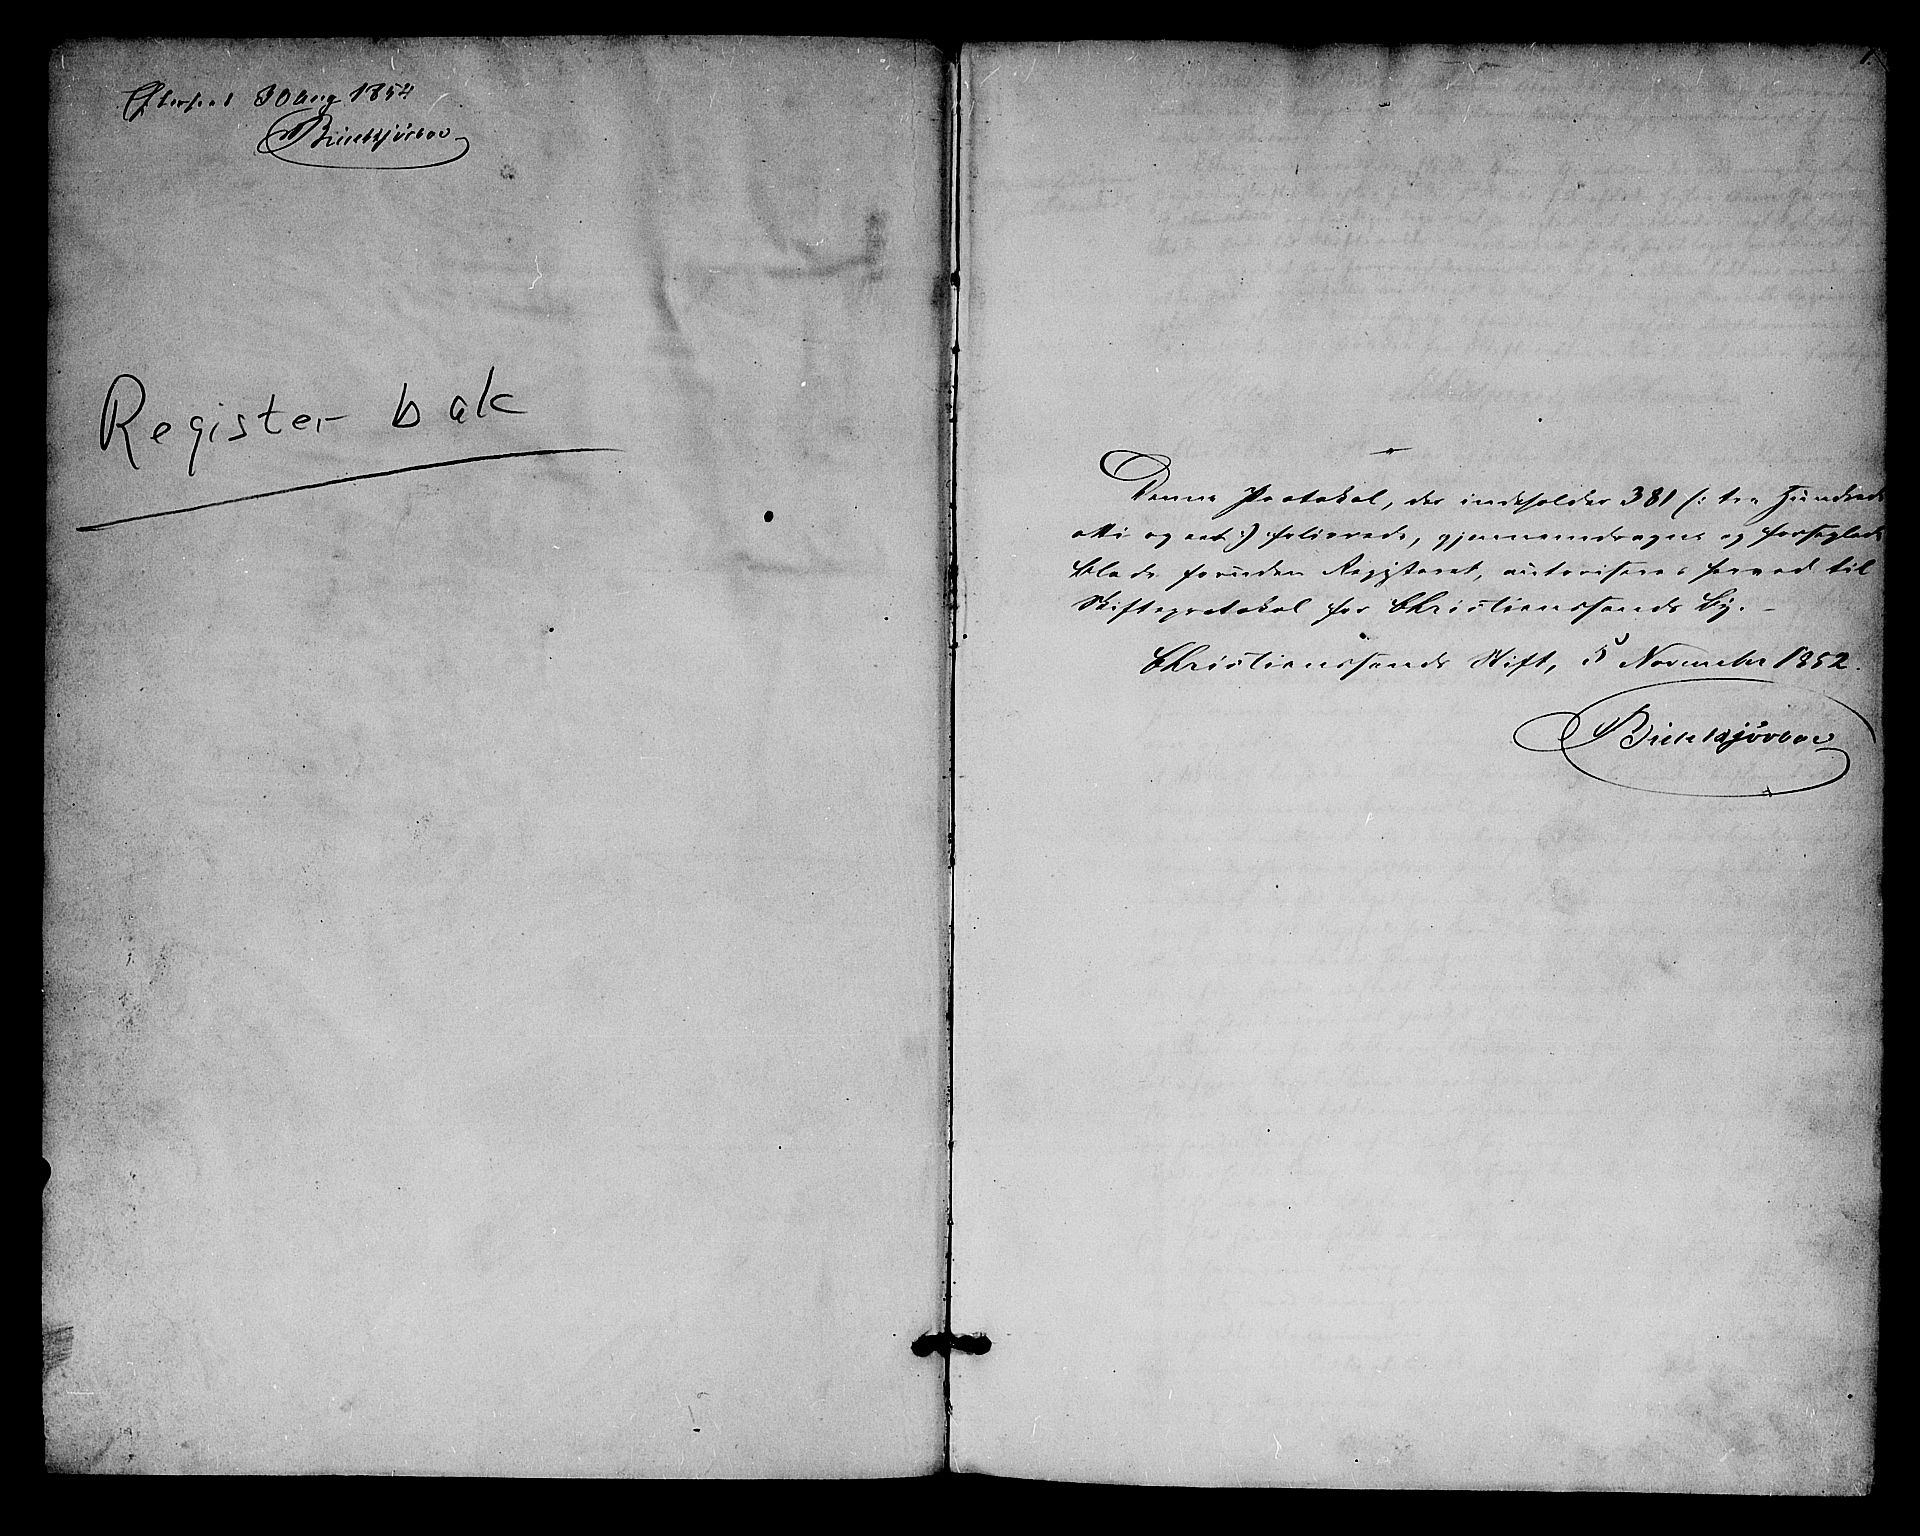 Efterseet 30 Aug 1854
Bruckhjörbov
Register bak
1.
Denne Protokol, der indeholder 381 (: tre Hundrede
otti og eet :) folierede, gjennemdragne og forseglede
Blade foruden Registeret, autoriseres herved til
Skifteprotokol for Christianssands By. –
Christianssands Stift, 5 November 1852.